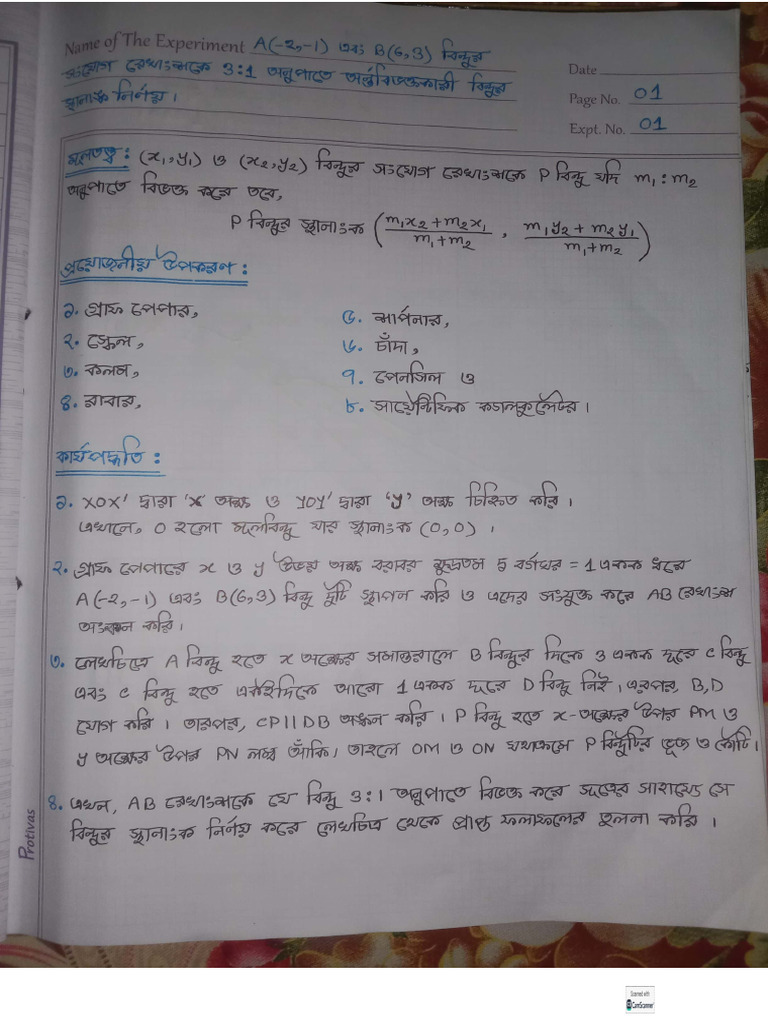 Name of The Experiment A(-2,-1) এবং B(6,3) বিন্দুর
সংযোগ রেখাংশকে 3:1 অনুপাতে অন্তর্বিভক্তকারী বিন্দুর
স্থানাঙ্ক নির্ণয়।
Date
Page No. 01
Expt. No. 01
মূলতত্ত্ব : (x₁,y₁) ও (x₂,y₂) বিন্দুর সংযোগ রেখাংশকে P বিন্দু যদি m₁ : m₂
অনুপাতে বিভক্ত করে তবে,
P বিন্দুর স্থানাংক (m₁x₂+m₂x₁/m₁+m₂ , m₁y₂+m₂y₁/m₁+m₂)
প্রয়োজনীয় উপকরণ :
১. গ্রাফ পেপার,
২. স্কেল,
৩. কলম,
৪. রাবার,
৫. শার্পনার,
৬. চাঁদা,
৭. পেনসিল ও
৮. সায়েন্টিফিক ক্যালকুলেটর।
কার্যপদ্ধতি :
১. XOX' দ্বারা 'x' অক্ষ ও YOY' দ্বারা 'y' অক্ষ চিহ্নিত করি।
এখানে, O হলো মূলবিন্দু যার স্থানাংক (0,0) ।
২. গ্রাফ পেপারের x ও y উভয় অক্ষ বরাবর ক্ষুদ্রতম 5 বর্গঘর = 1 একক ধরে
A(-2,-1) এবং B(6,3) বিন্দু দুটি স্থাপন করি ও এদের সংযুক্ত করে AB রেখাংশ
অংকন করি।
৩. লেখচিত্রে A বিন্দু হতে x অক্ষের সমান্তরালে B বিন্দুর দিকে 3 একক দূরে C বিন্দু
এবং C বিন্দু হতে একইদিকে আরো 1 একক দূরে D বিন্দু নিই। এরপর, B,D
যোগ করি। তারপর, CP||DB অঙ্কন করি। P বিন্দু হতে x-অক্ষের উপর PM ও
y অক্ষের উপর PN লম্ব আঁকি। তাহলে OM ও ON যথাক্রমে P বিন্দুটির ভূজ ও কোটি।
৪. এখন, AB রেখাংশকে যে বিন্দু 3:1 অনুপাতে বিভক্ত করে সূত্রের সাহায্যে সে
বিন্দুর স্থানাংক নির্ণয় করে লেখচিত্র থেকে প্রাপ্ত ফলাফলের তুলনা করি।
Protivas
Scanned with
CamScanner